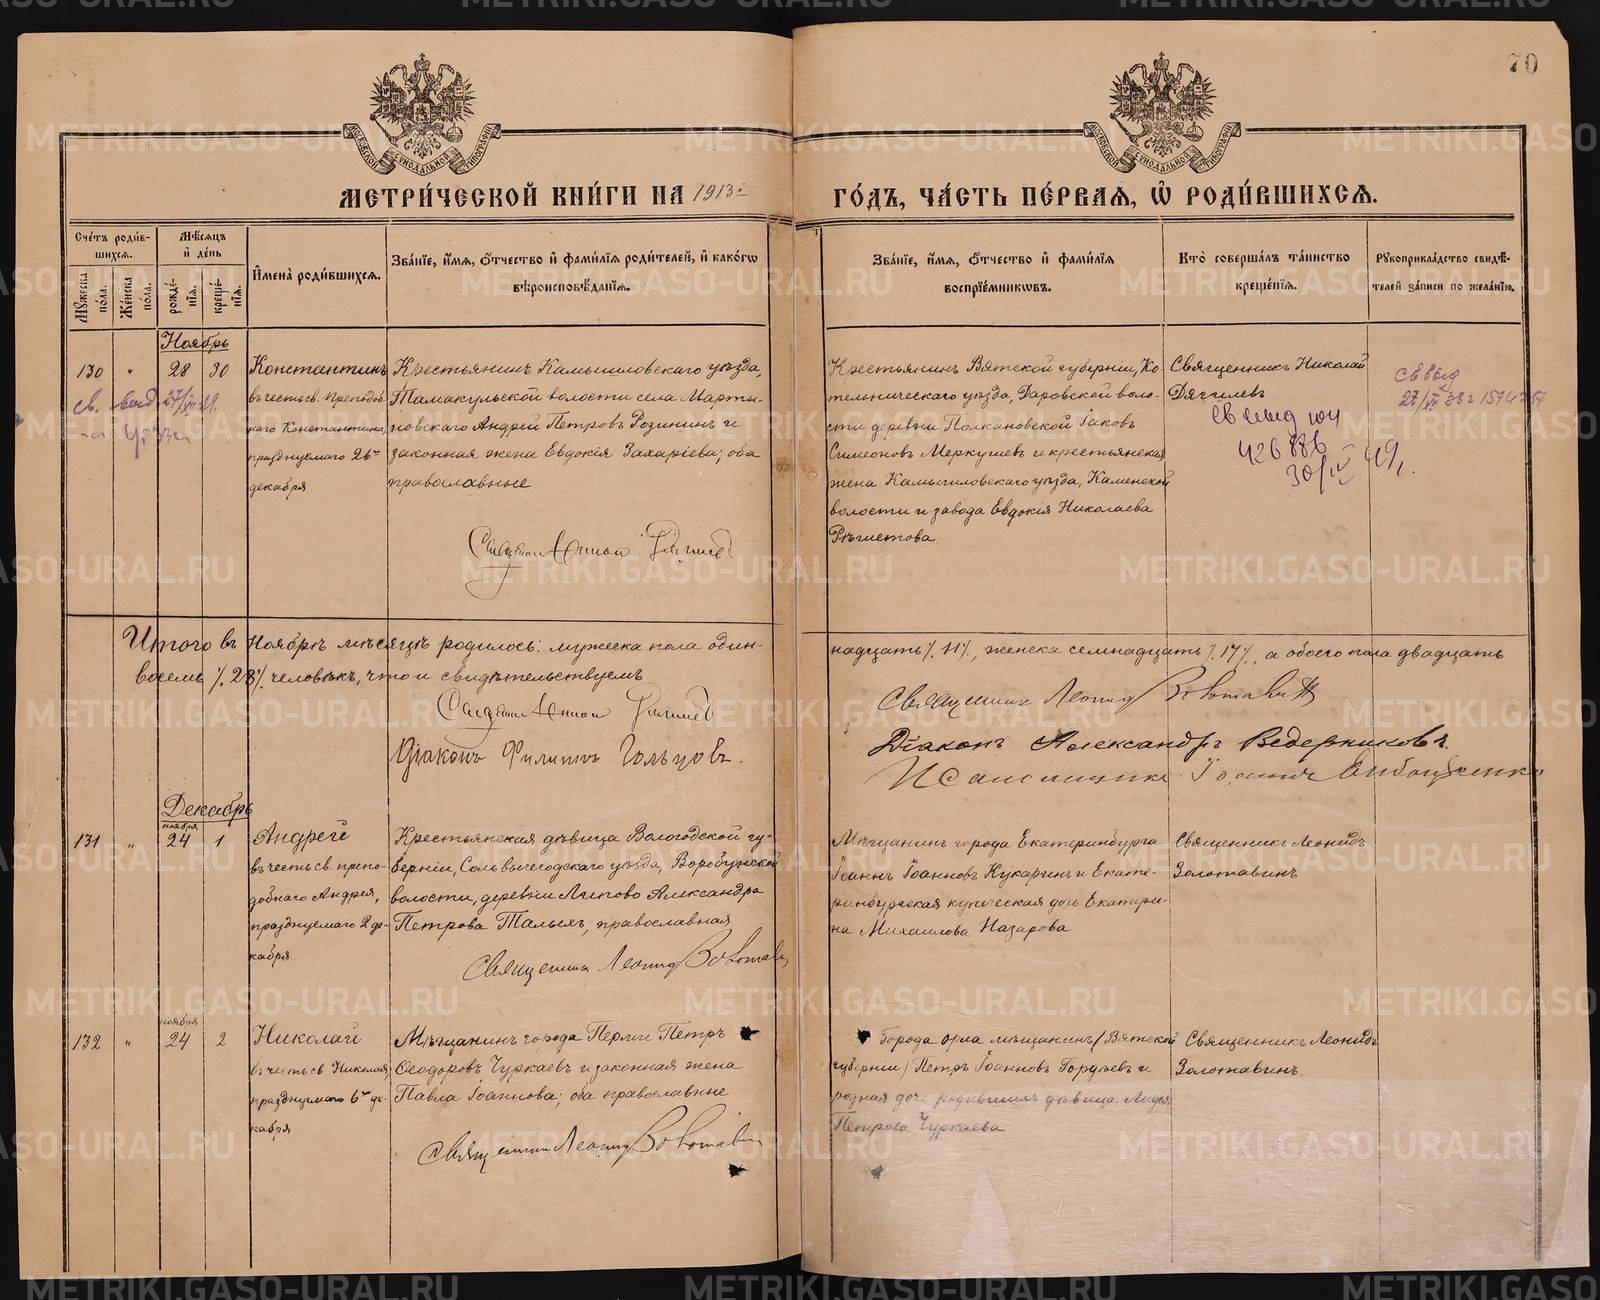 70
МОСКОВСКОЙ СѴНОДАЛЬНОЙ ТИПОГРАФІИ
МОСКОВСКОЙ СѴНОДАЛЬНОЙ ТИПОГРАФІИ
МЕТРИ́ЧЕСКОЙ КНИ́ГИ НА 1913й
ГО́ДЪ, ЧА́СТЬ ПЕ́РВАЯ, Ѡ҆ РОДИ́ВШИХСЯ.
Сче́тъ роди́в-
шихся.
Мѣ́сяцъ
и҆ де́нь
И҆мена̀ роди́вшихся.
Зва́нїе, и҆́мя, ѻ҆́тчество и҆ фами́лїя роди́телей, и҆ како́гѡ
вѣроисповѣ́данїя.
Зва́нїе, и҆́мя, ѻ҆́тчество и҆ фами́лїя
воспрїе́мникѡвъ.
Кто̀ соверша́лъ та́инство
креще́нїя.
Рꙋкоприкла́дство свидѣ́-
телей за́писи по жела́нїю.
Мꙋ́жеска по́ла.
Же́нска по́ла.
рожде́-нїя.
креще́-нїя.
Ноябрь
130 " 28 30
Константинъ
въ честь св. Преподоб-
наго Константина,
празднуемаго 26го
декабря
Крестьянинъ Камышловскаго уѣзда,
Тамакульской волости села Марты-
новскаго Андрей Петровъ Розининъ и
законная жена Евдокія Захаріева; оба
православные
Крестьянинъ Вятской губерніи, Ко-
тельническаго уѣзда, Даровской воло-
сти деревни Полкановской Іаковъ
Симеоновъ Меркушевъ и крестьянская
жена Камышловскаго уѣзда, Каменской
волости и завода Евдокія Николаева
Священникъ Николай
Дягилевъ
св выд
426886
30/IV 49 г.
св выд
Итого въ Ноябрѣ мѣсяцѣ родилось: мужеска пола один-
надцать /.11/., женска семнадцать /.17/., а обоего пола двадцать
восемь /.28/. человѣкъ, что и свидѣтельствуемъ
Священникъ Леонид Золотавин
Діаконъ Филиппъ Гольцовъ.
Діаконъ Александръ Ведерниковъ.
Псаломщикъ
Декабрь
ноября
131 " 24 1
Андрей
въ честь св. препо-
добнаго Андрея,
празднуемаго 2 де-
кабря
Крестьянская дѣвица Вологодской гу-
берніи, Сольвычегодскаго уѣзда,
волости, деревни Липово Александра
Петрова Талыхъ; православная
Священник Леонид Золотавин
Мѣщанинъ города Екатеринбурга
Іоаннъ Іоанновъ Кукаринъ и Екате-
ринбургская купеческая дочь Екатери-
на Михаилова Назарова
Священникъ Леонидъ
Золотавинъ
ноября
132 " 24 2
Николай
въ честь св Николая,
празднуемаго 6го де-
кабря
Мѣщанинъ города Перми Петръ
Ѳеодоровъ Чуркаевъ и законная жена
Павла Іоаннова; оба православные
Священник Леонид Золотавин
Города Орла мѣщанинъ /Вятской
губерніи/ Петръ Іоанновъ Гордѣевъ и
родная дочь родившихъ дѣвица Лидія
Петрова Чуркаева
Священникъ Леонидъ
Золотавинъ.
METRIKI.GASO-URAL.RU